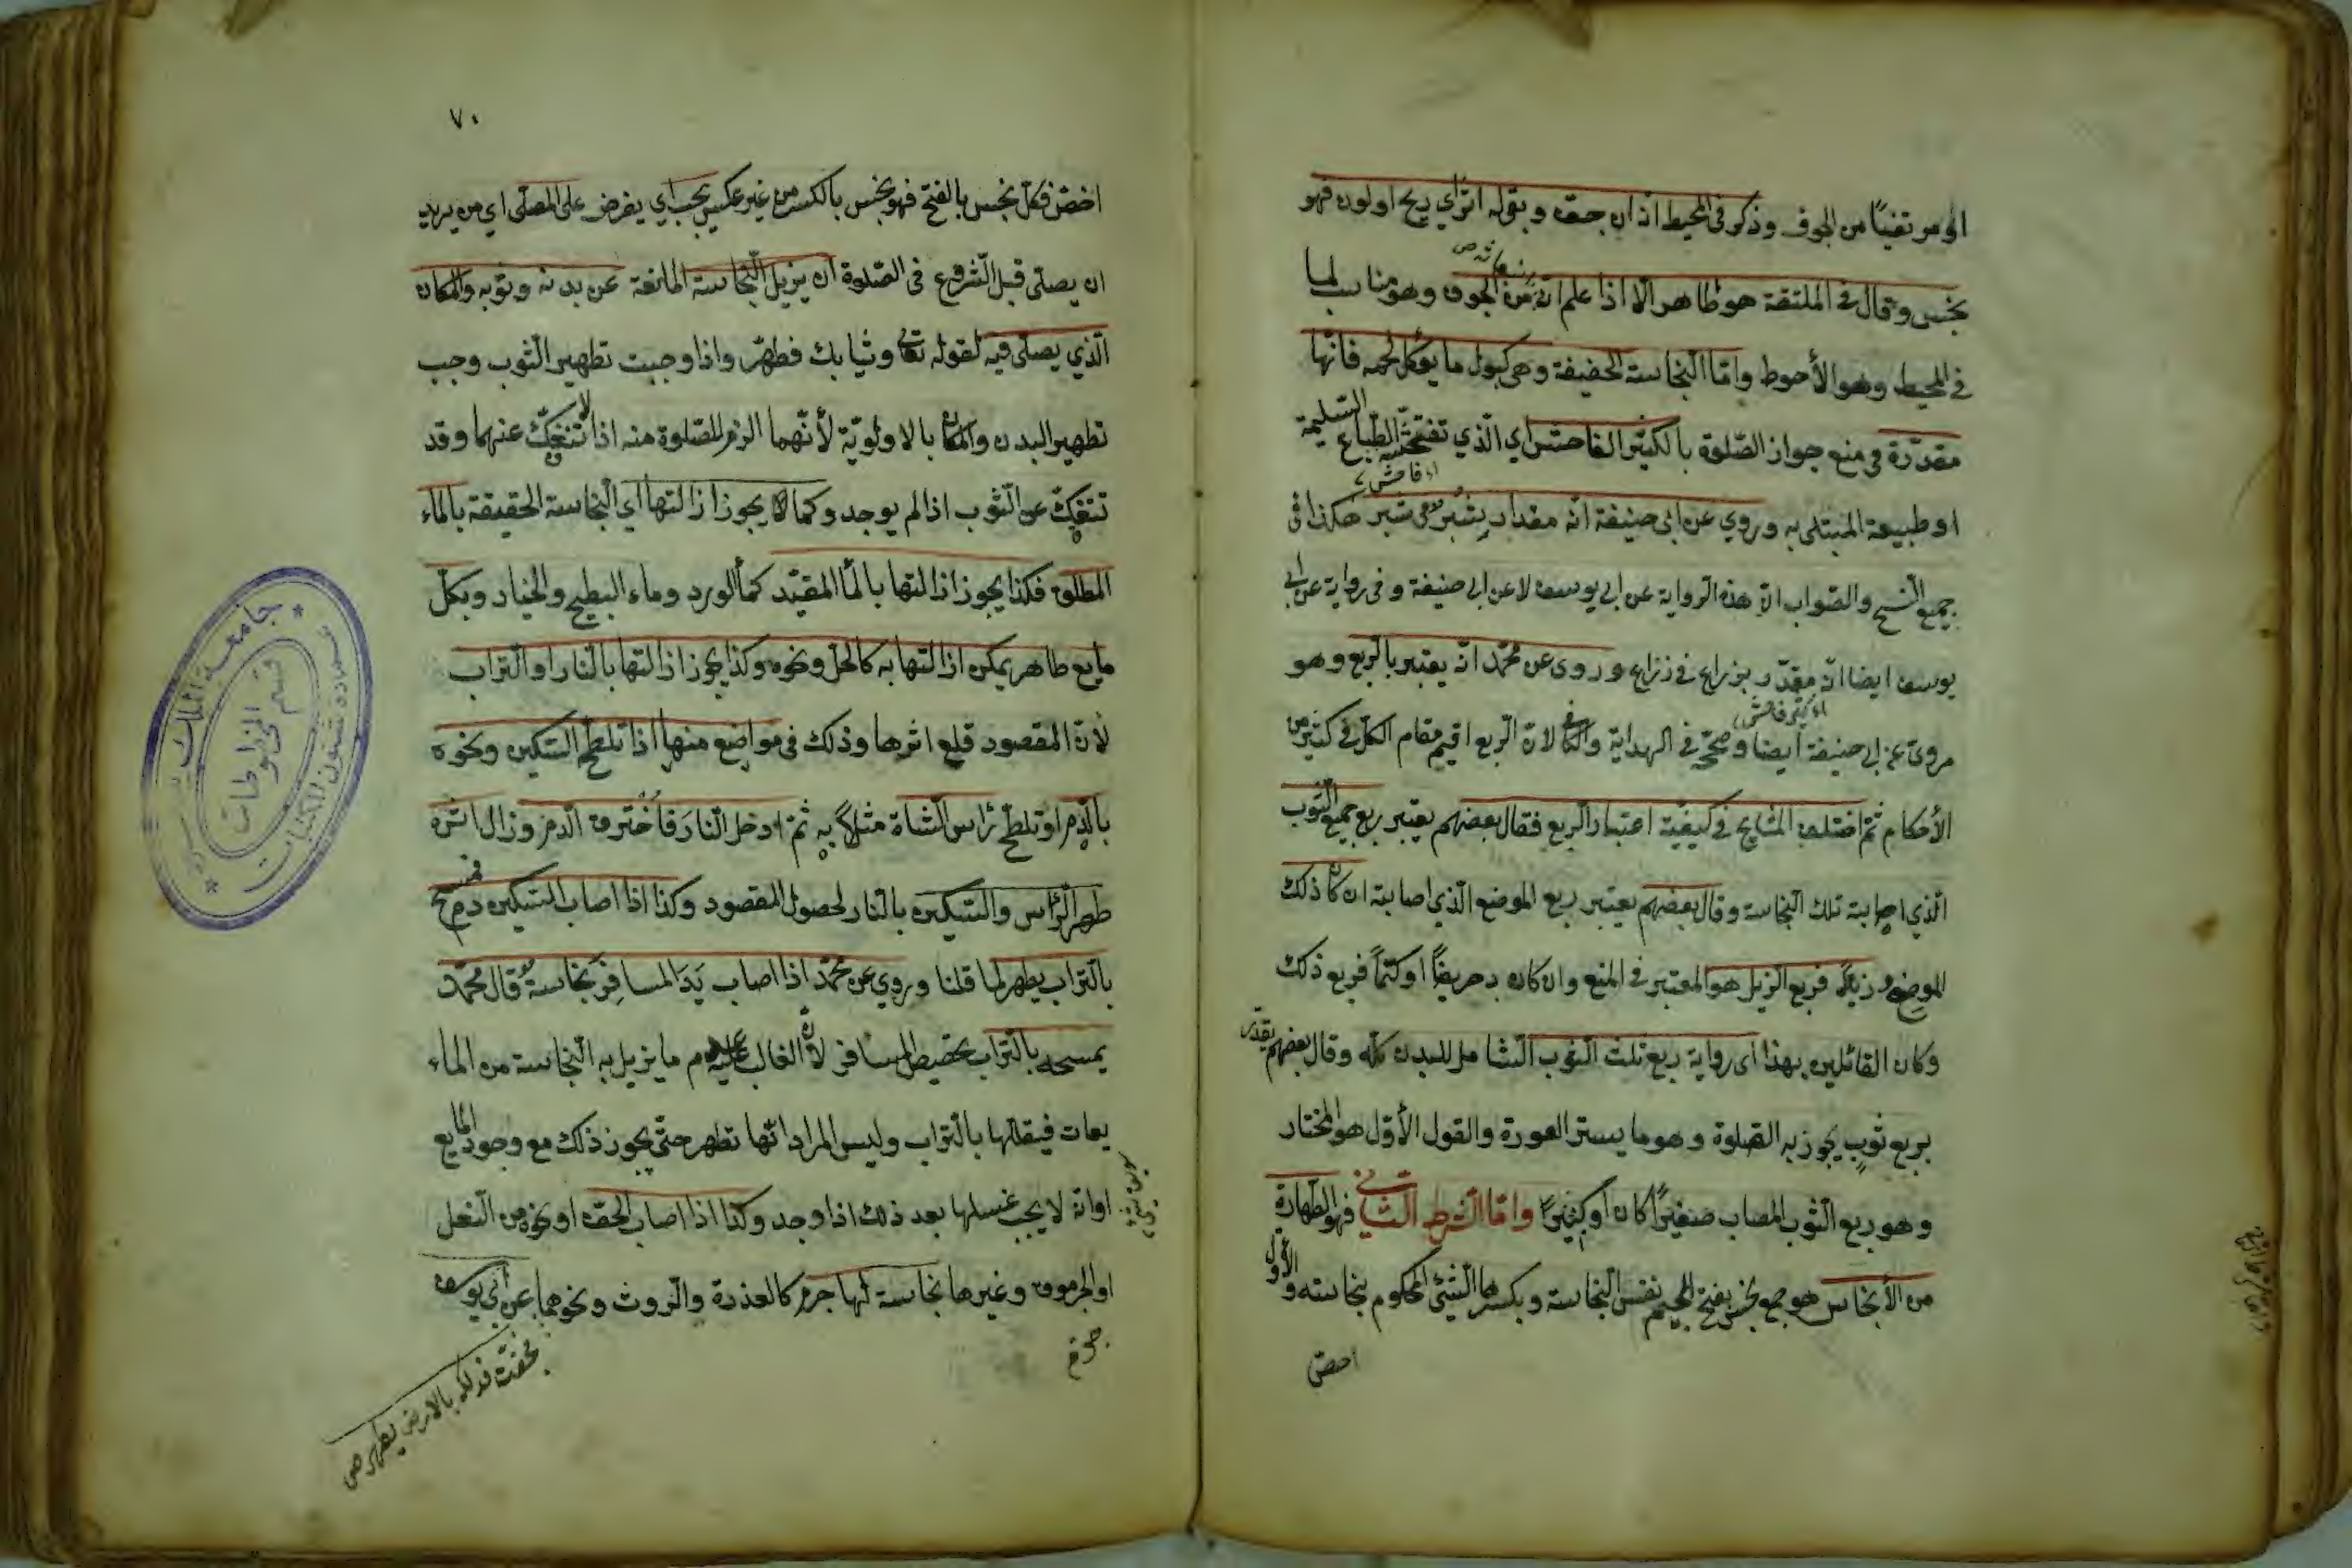 او مرتقيًا من الجوف وذكر في المحيط اذ ان جف وبقوله اثر اي ريح او لون فهو
نجس وقال في الملتقة هو طاهر الا اذا علم انه من الجوف وهو مناسب لما
في المحيط وهو الأحوط وامّا النجاسة الخفيفة وهي كبول ما يؤكل لحمه فانّها
مقدّرة في منع جواز الصّلوة بالكثير الفاحش اي الّذي تفتحشه الطّباع السّليمة
او طبيعة المبتلى به وروي عن ابي حنيفة انّه مقدار شبر في شبر هكذا في
جميع النّسخ والصّواب انّ هذه الرّواية عن ابي يوسف لا عن ابي حنيفة وفي رواية عن ابي
يوسف ايضا انّه مقدّر بذراع في ذراع وروى عن محمّد انّه يعتبر بالرّبع وهو
مروىّ عن ابي حنيفة ايضا وصحّحه في الهداية والكافي لانّ الرّبع اقيم مقام الكلّ في كثير من
الأحكام ثمّ اختلف المشايخ في كيفيّة اعتبار الرّبع فقال بعضهم يعتبر ربع جميع الثّوب
الّذي اصابته تلك النّجاسة وقال بعضهم يعتبر ربع الموضع الّذي اصابته ان كان ذلك
الموضع ذيلاً فربع الذّيل هو المعتبر في المنع وان كان دخريضًا او كمًّا فربع ذلك
وكان القائلين بهذا اي رواية ربع ثلث الثوب الشّامل للبدن كلّه وقال بعضهم يقدّر
بربع ثوب يجوز به الصّلوة وهو ما يستر العورة والقول الأوّل هو المختار
وهو ربع الثّوب المصاب صغيرًا كان او كبيرًا وامّا الشّرط الثّاني فهو الطّهارة
من الأنجاس هو جمع نجس بفتح الجيم نفس النّجاسة وبكسرها الشّئ المحكوم بنجاسته والأوّل
اخصّ
٧٠
اخصّ فكلّ نجس بالفتح فهو نجس بالكسر من غير عكس يجب اي يفرض على المصلّى اي من يريد
ان يصلّى قبل الشّروع في الصّلوة ان يزيل النّجاسة المانعة عن بدنه وثوبه والمكان
الّذي يصلّى فيه لقوله تعالى وثيابك فطهّر واذا وجبت تطهير الثّوب وجب
تطهير البدن والمكان بالاولويّة لأنّهما الزم للصّلوة منه اذ لا تنفكّ عنهما وقد
تنفكّ عن الثّوب اذا لم يوجد وكما يجوز ازالتها اي النّجاسة الحقيقة بالماء
المطلق فكذا يجوز ازالتها بالماء المقيّد كماء الورد وماء البطيخ والخيار وبكلّ
مايع طاهر يمكن ازالتها به كالخلّ ونحوه وكذا يجوز ازالتها بالنّار او التّراب
لأنّ المقصود قلع اثرها وذلك في مواضع منها اذا تلطّخ السّكين ونحوه
بالدّم او تلطّخ رأس الشّاة مثلاً به ثمّ ادخل النّار فاحترق الدّم وزال اثره
طهر الرّأس والسّكين بالنّار لحصول المقصود وكذا اذا اصاب السّكين دم فمسح
بالتّراب يطهر لما قلنا وروي عن محمّد اذا اصاب يَدَ المسافِرِ نجاسةٌ قال محمّد
يمسحه بالتّراب تخصيص المسافر لانّ الغالب عليه عدم ما يزيل به النّجاسة من الماء
يعات فيقلّلها بالتّراب وليس المراد انّها تطهر حتّى يجوز ذلك مع وجود المايع
او انّه لا يجب غسلها بعد ذلك اذا وجد وكذا اذا اصاب الخفّ او نحوه من النّعل
او الجرموق وغيرها نجاسة لها جرم كالعذرة والرّوث ونحوهما عن ابي يوسف
فجفّت فدلكه بالارض يطهر صح
جامعة الملك
قسم المخطوطات
عمادة شئون المكتبات